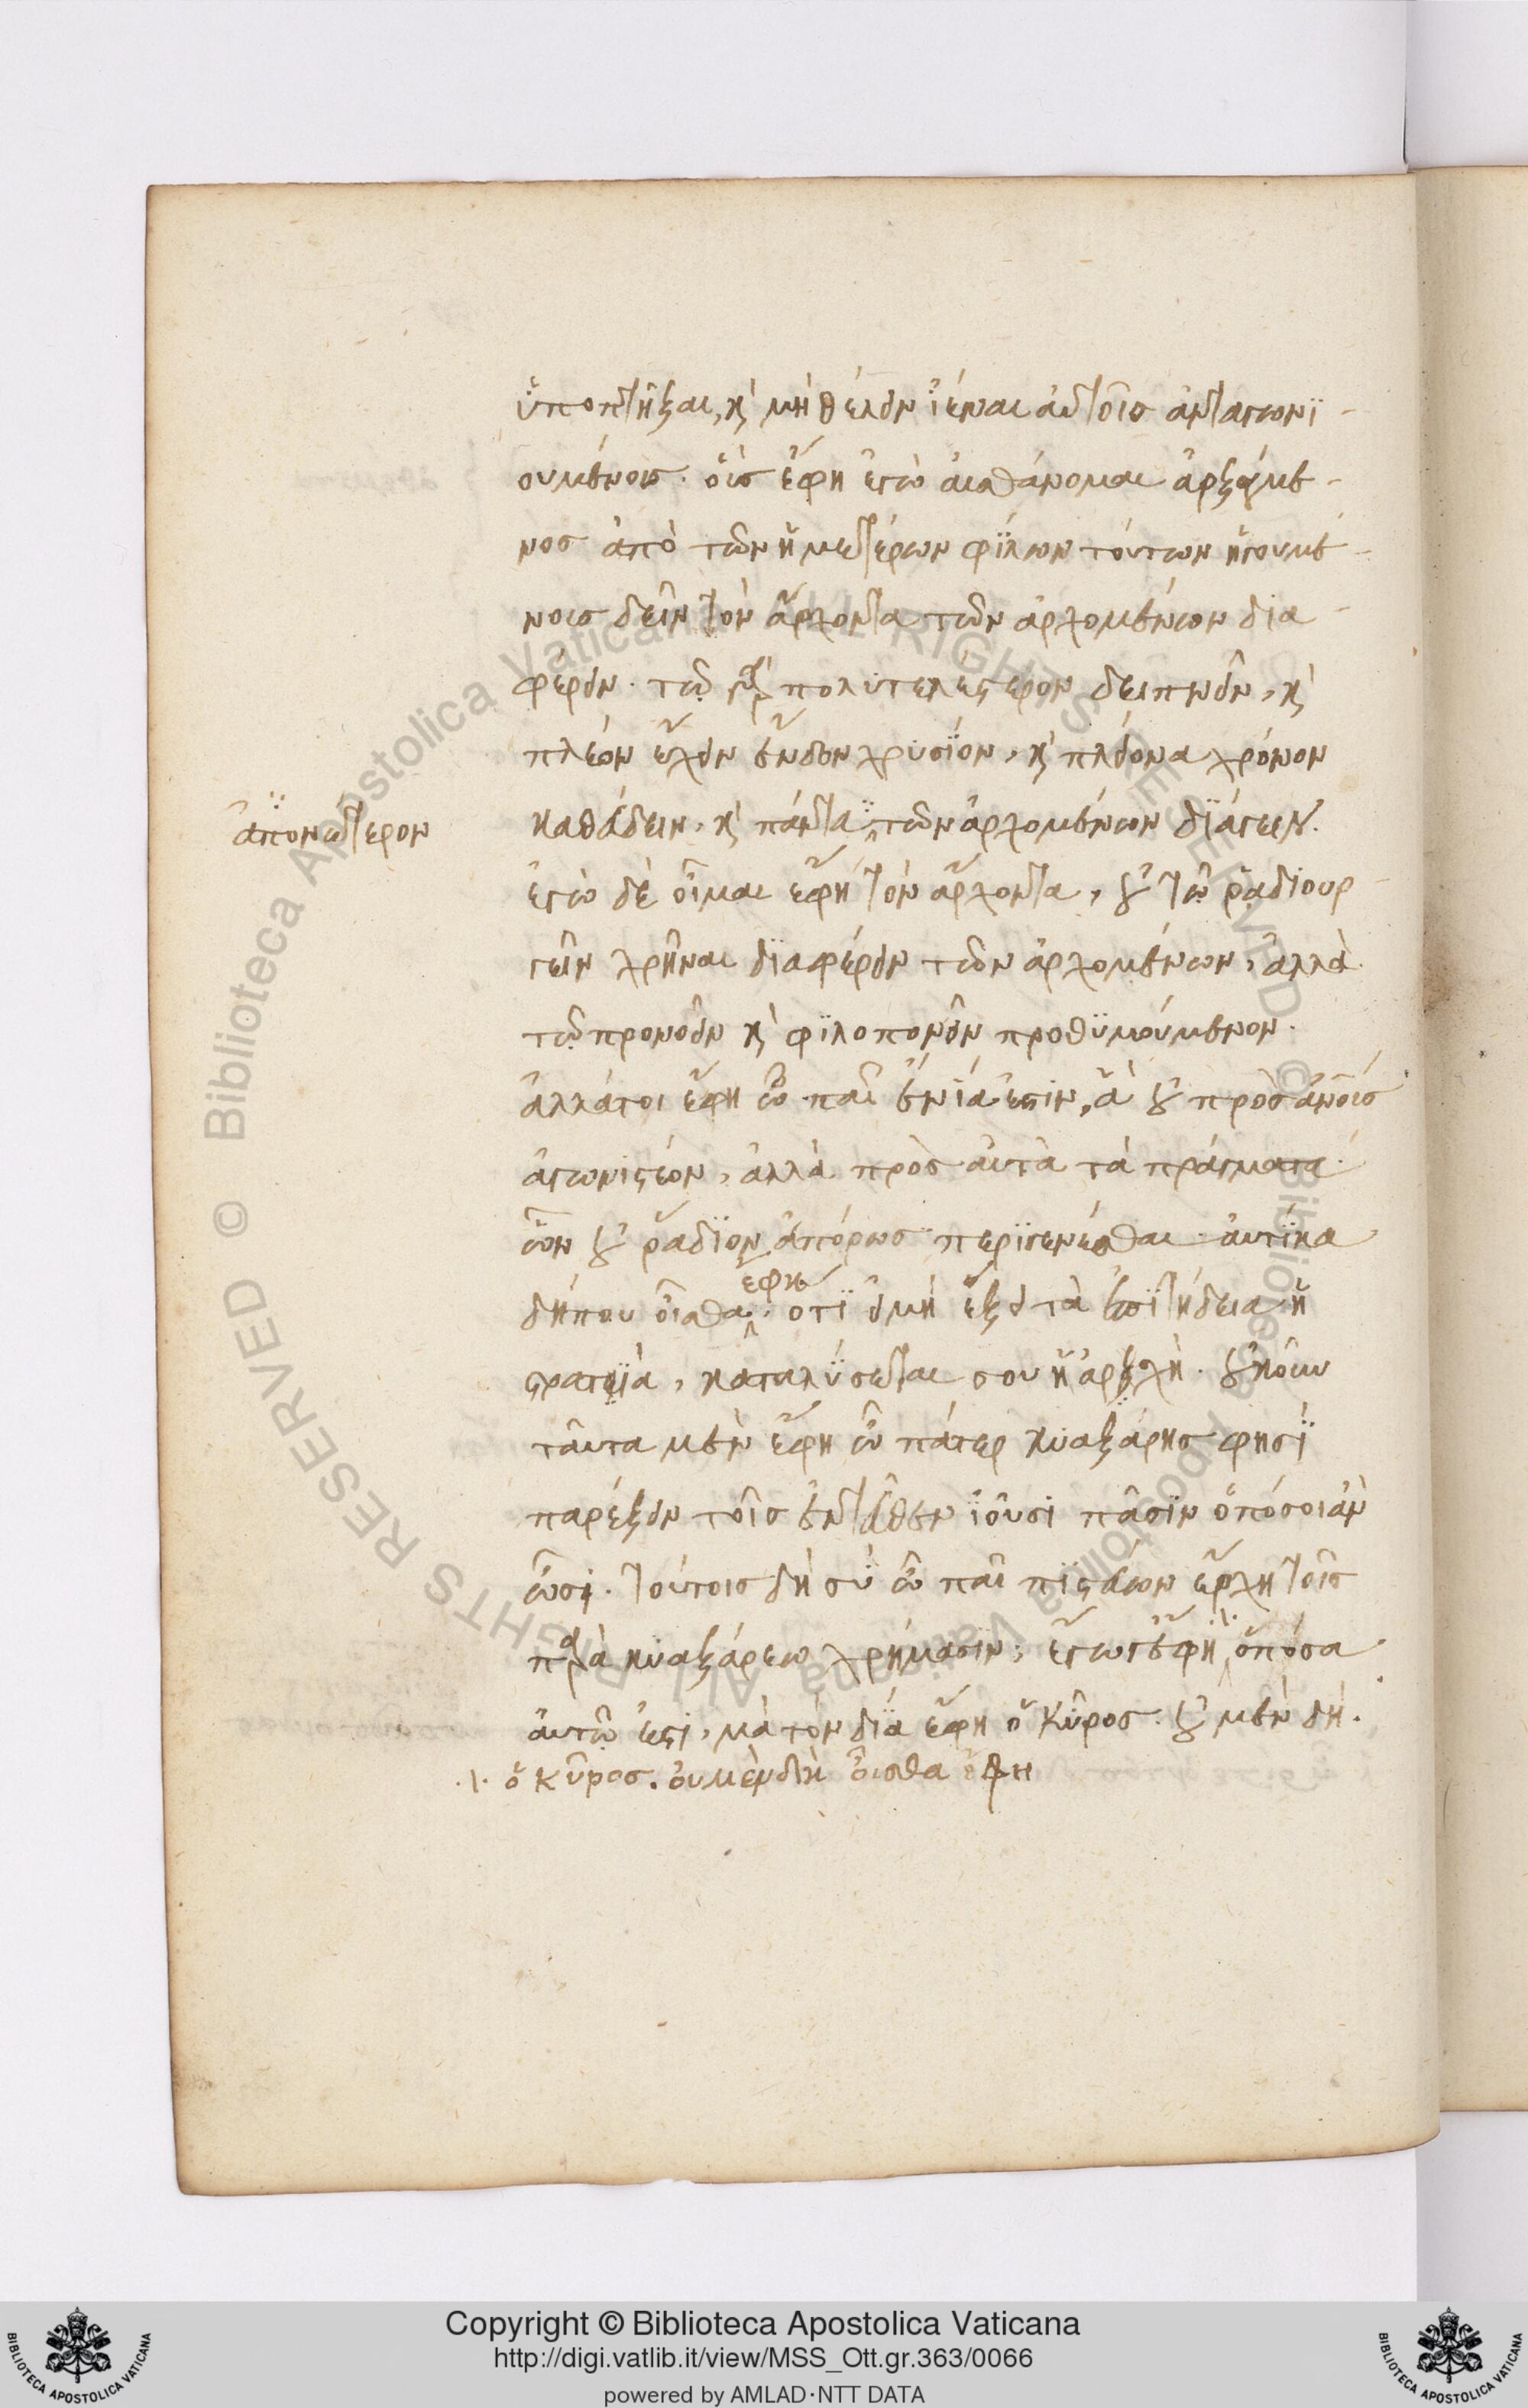 ὑποπτῆξαι, κ̀ μὴ θέλειν ἰέναι αὐτοῖς ἀνταγωνϊ-
ουμένοις. οὓς ἔφη ἐγὼ αἰσθάνομαι ἀρξάμε-
νος ἀπὸ τῶν ἡμετέρων φίλων τούτων ἡγουμέ-
νοις δεῖν τὸν ἄρχοντα τῶν ἀρχομένων δια-
φέρειν. τῷ καὶ πολυτελέστερον δειπνεῖν, κ̀
πλέον ἔχειν ἔνδον χρυσίον, κ̀ πλείονα χρόνον
καθεύδειν, κ̀ πάντα τῶν ἀρχομένων διάγειν.
ἀπονώτερον
ἐγὼ δὲ οἶμαι ἔφη τὸν ἄρχοντα, οὐ τῷ ῥαδιουρ-
γεῖν χρῆναι διαφέρειν τῶν ἀρχομένων, ἀλλὰ
τῷ προνοεῖν κ̀ φιλοπονεῖν προθυμούμενον.
ἀλλάτοι ἔφη ὦ παῖ ἔνιά ἐστιν, ἃ οὐ πρὸς ἀνοις
ἀγωνιστέον, ἀλλὰ πρὸς αὐτὰ τὰ πράγματα.
ὧν οὐ ῥάδιον ἀπόρως περιγενέσθαι. αὐτίκα
δήπου οἶσθα ἔφη. ὅτι εἰ μὴ ἕξει τὰ ἐπιτήδεια ἡ
στρατιὰ, καταλύσεταί σου ἡ ἀρχὴ. οὐκοῦν
ταῦτα μὲν ἔφη ὦ πάτερ κυαξάρης φησὶ
παρέξειν τοῖς ἐντεῦθεν ἰοῦσι πᾶσιν ὁπόσοι ἂν
ὦσι. τούτοις δὴ σὺ ὦ παῖ πιστεύων ἔρχῃ τοῖς
παρὰ κυαξάρεω χρήμασιν; ἔγωγ' ἔφη ·/· ὁπόσα
αὐτῷ ἐστι, μὰ τὸν δία ἔφη ὁ Κῦρος. οὐ μὲν δή.
·/· ὁ Κῦρος. οὐ μὲν δὴ οἶσθα ἔφη
Copyright © Biblioteca Apostolica Vaticana
http://digi.vatlib.it/view/MSS_Ott.gr.363/0066
powered by AMLAD·NTT DATA